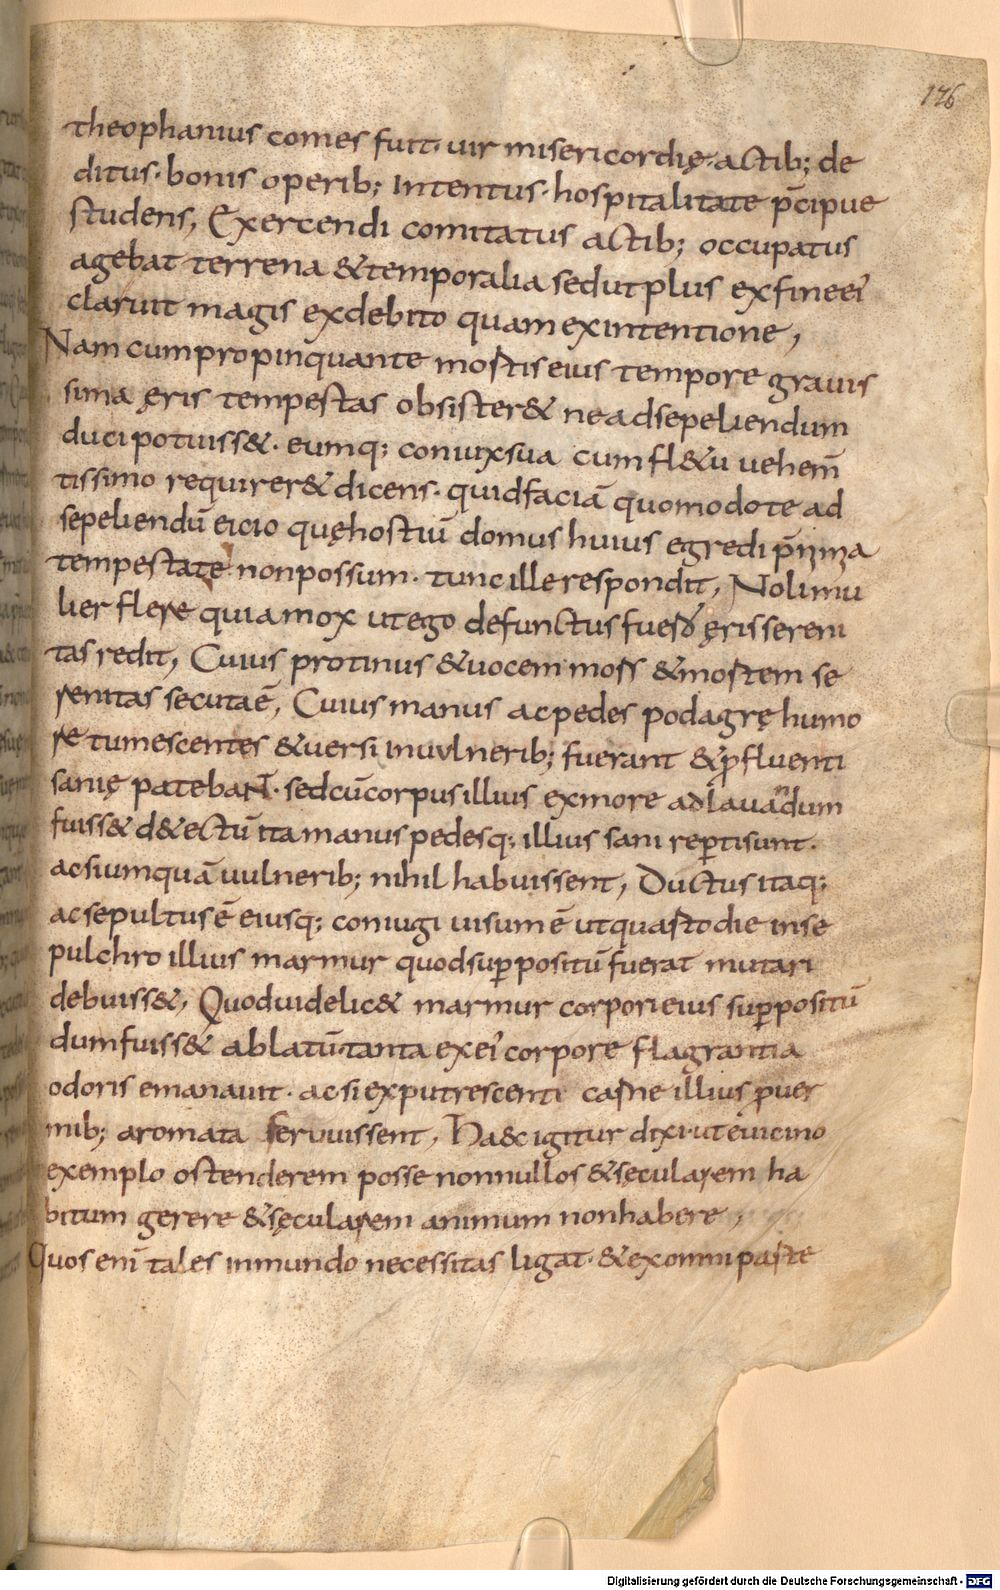 176
theophanius comes fuit· uir misericordię· actib; de
ditus· bonis operib; intentus· hospitalitate p̄cipue
studens, Exercendi comitatus actib; occupatus
agebat terrena &temporalia sedut plus exfineei'
claruit magis exdebito quam exintentione,
Nam cumpropinquante mortis eius tempore grauis
sima ęris tempestas obsister& ne adsepeliendum
duci potuiss&· eumq; coniuxsua cum fl&u uehem̄
tissimo requirer& dicens· quidfaciā quomodo te ad
sepeliendū eicio quęhostiū domus huius egredi p̄nima
tempestate nonpossum· tunc ille respondit, Noli mu
lier flere quia mox ut ego defunctus fuero ęris sereni
tas redit, Cuius protinus &uocem mors &mortem se
renitas secuta ē, Cuius manus ac pedes podagrę humo
re tumescentes &uersi inuulnerib; fuerant &ꝓfluenti
sanię patebant· sed cū corpus illius exmore ad lauandum
fuiss& d&ectū ita manus pedesq; illius sani rep̄ti sunt·
acsi umquā uulnerib; nihil habuissent, Ductus itaq;
ac sepultus ē eiusq; coniugi uisum ē ut quarto die inse
pulchro illius marmur quod sup̄positū fuerat mutari
debuiss&, Quod uidelic& marmur corpori eius sup̄positū
dum fuiss& ablatū· tanta ex ei' corpore flagrantia
odoris emanauit· ac si exputrescenti carne illius ꝓ uer
mib; aromata feruuissent, Ha&c igitur dixi· ut euicino
exemplo ostenderem posse nonnullos &sęcularem ha
bitum gerere &sęcularem animum non habere,
Quos enī tales inmundo necessitas ligat· &exomni parte
Digitalisierung gefördert durch die Deutsche Forschungsgemeinschaft - DFG